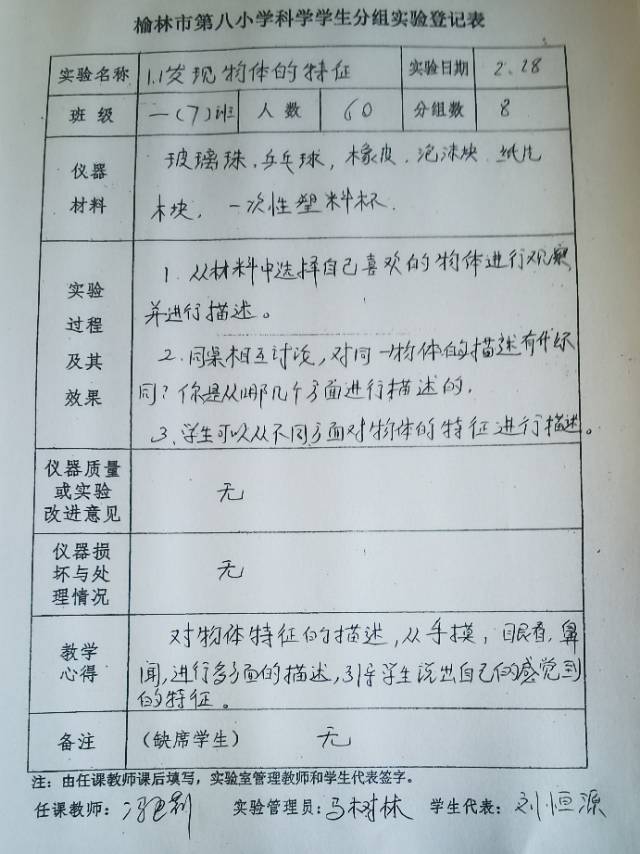 榆林市第八小学科学学生分组实验登记表
实验名称 1.1发现物体的特征 实验日期 2.28
班级 一(7)班 人数 60 分组数 8
仪器
材料
玻璃珠,乒乓球,橡皮.泡沫块.纸片
木块,一次性塑料杯.
实验
过程
及其
效果
1.从材料中选择自己喜欢的物体进行观察
并进行描述。
2.同桌相互讨说,对同一物体的描述有什么不
同?你是从哪几个方面进行描述的.
3.学生可以从不同方面对物体的特征进行描述。
仪器质量
或实验
改进意见
无
仪器损
坏与处
理情况
无
教学
心得
对物体特征的描述,从手摸,眼看,鼻
闻,进行多方面的描述,引导学生说出自己的感觉到
的特征。
备注 (缺席学生) 无
注:由任课教师课后填写,实验室管理教师和学生代表签字。
任课教师: 实验管理员:马树林 学生代表:刘恒源